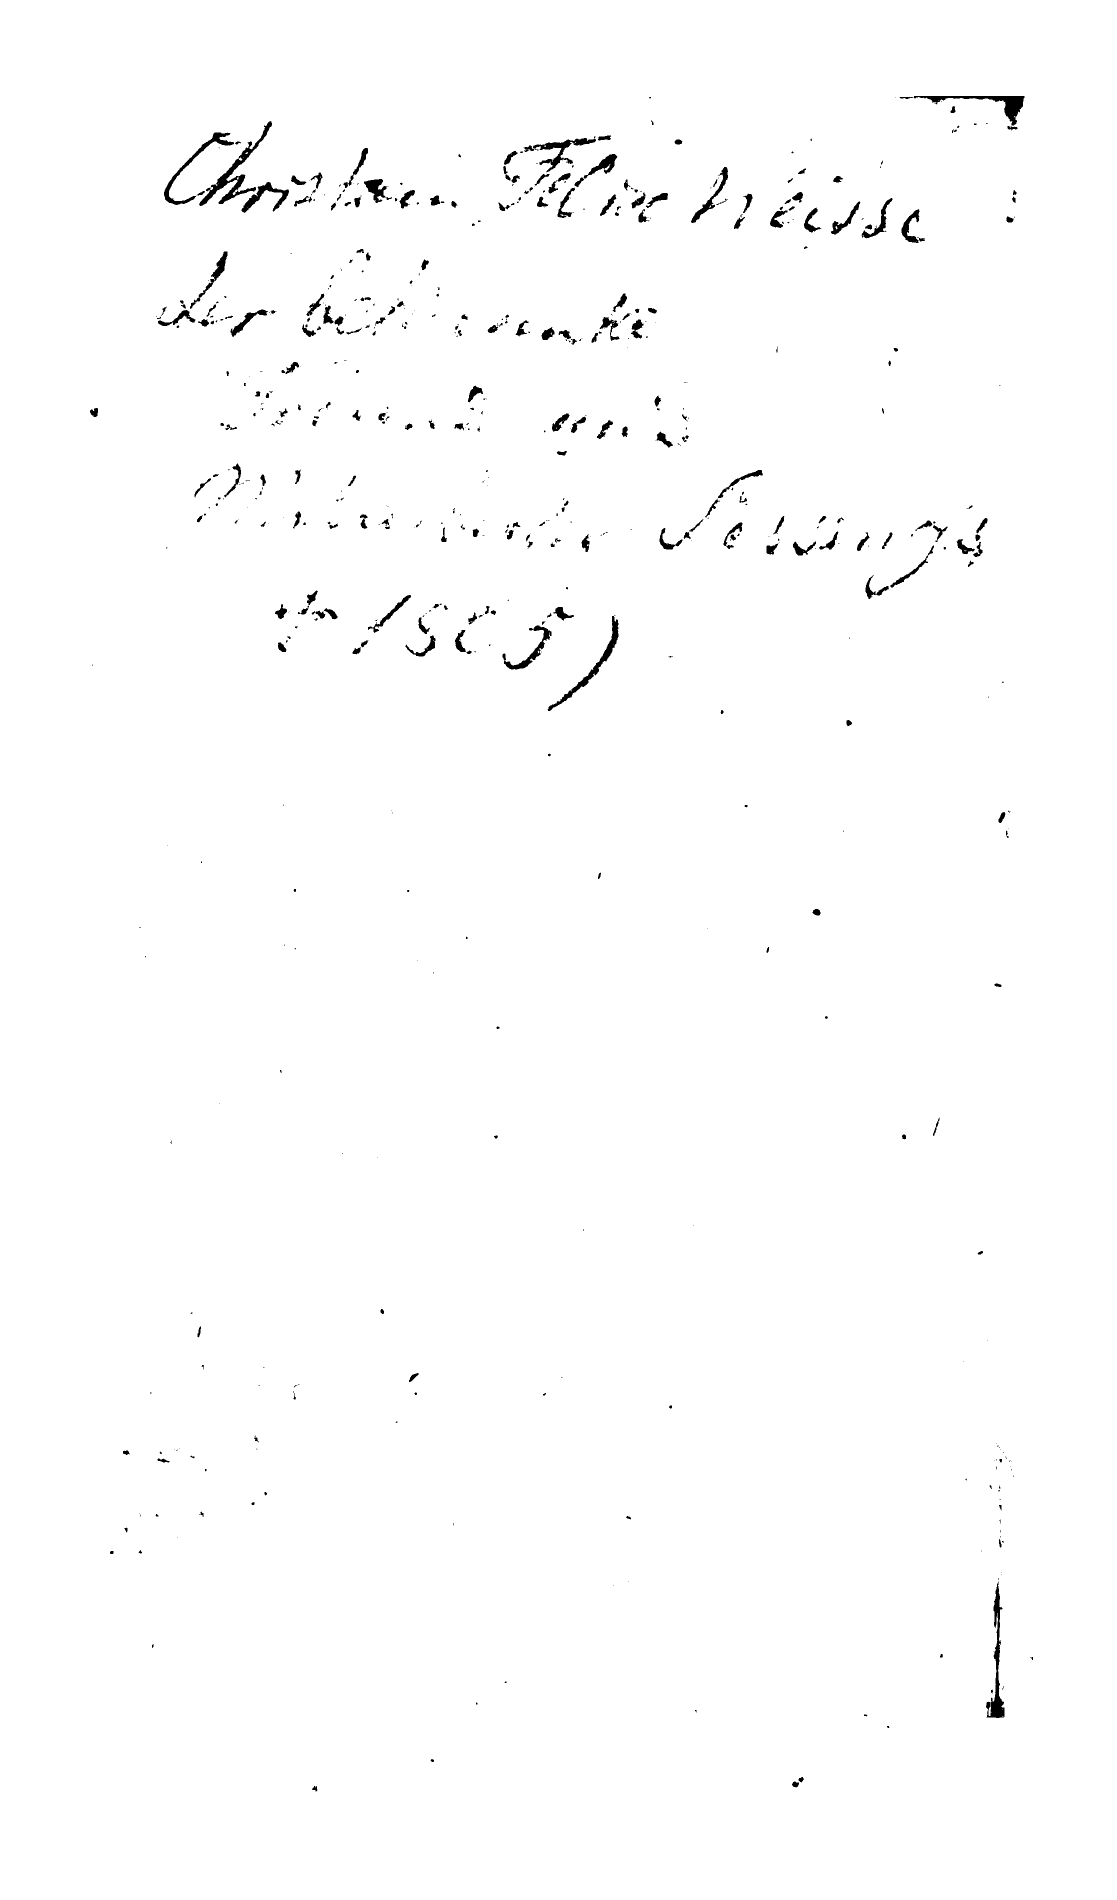 Christian Felix Weisse
der bekannte
Freund und
Mitarbeiter Lessings
† 1805)